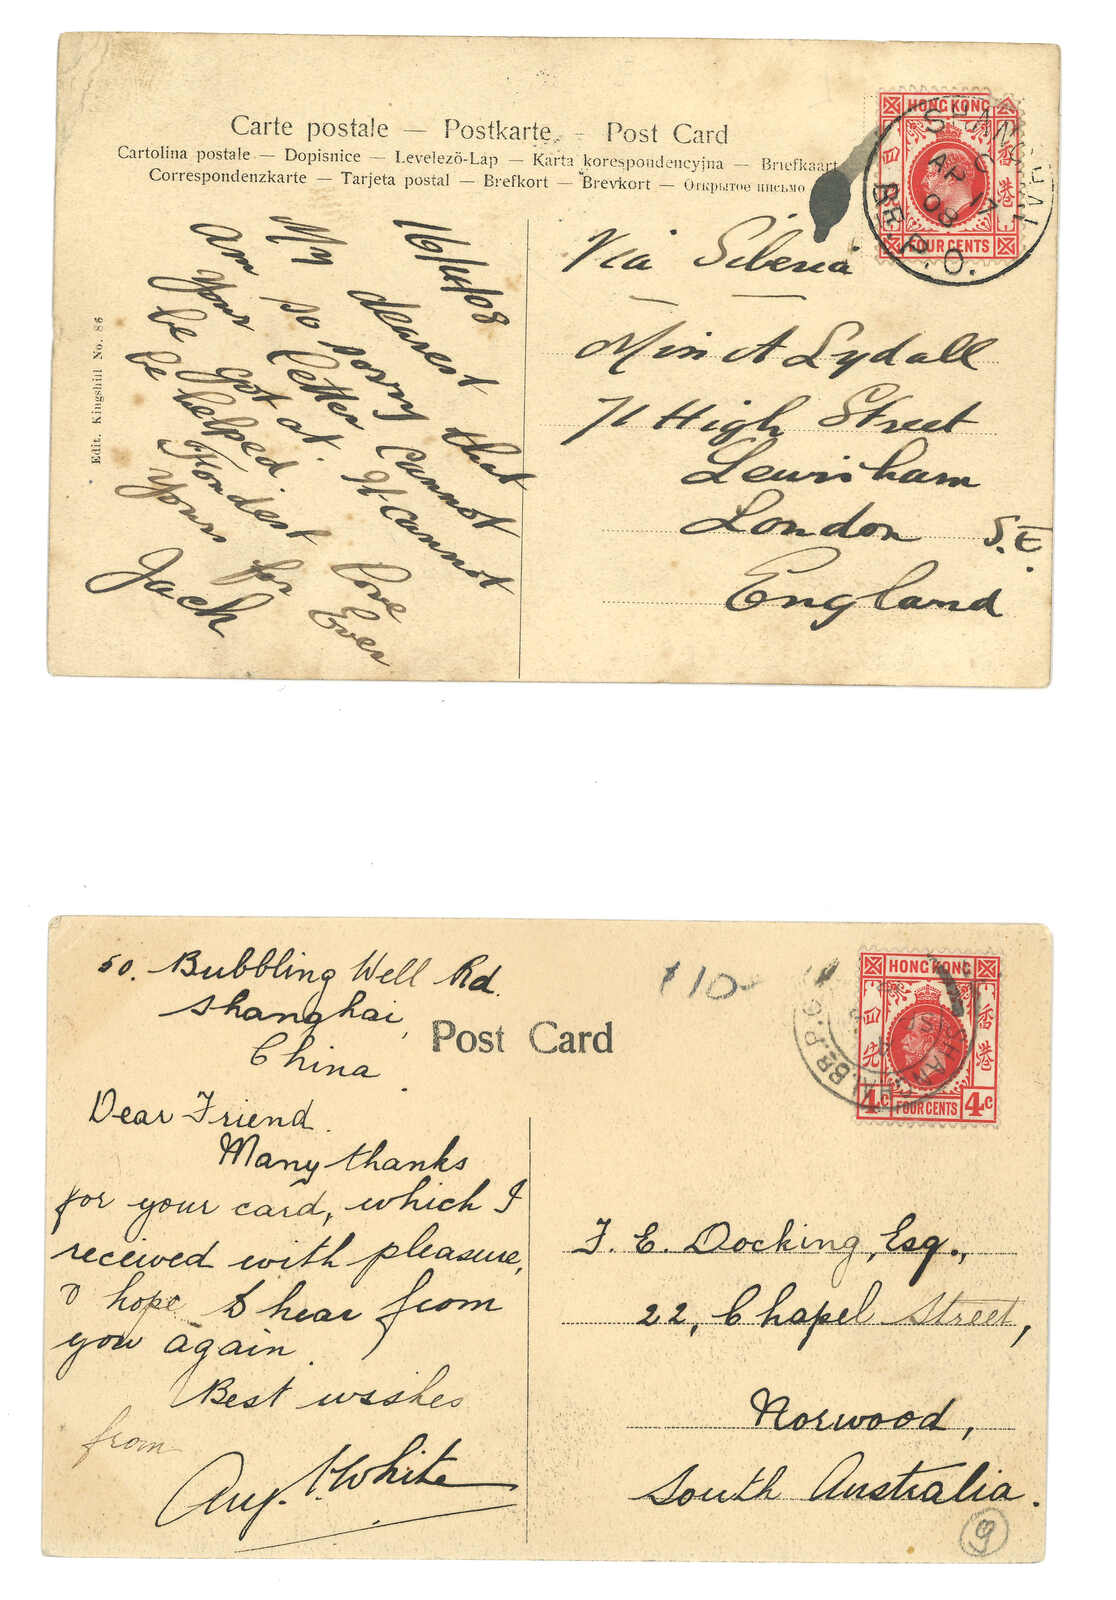 Carte postale — Postkarte — Post Card
Cartolina postale — Dopisnice — Levelező-Lap — Karta korespondencyjna — Briefkaart
Correspondenzkarte — Tarjeta postal — Brefkort — Brevkort — Открытое письмо
HONG KONG
四
香港
FOUR CENTS
SHANGHAI
C
AP 17
08
BR. P. O.
Via Siberia
Miss A Lydall
71 High Street
Lewisham
London S.E.
England
16/4/08
My dearest
am so sorry that
your letter cannot
be got at. It cannot
be helped.
Fondest love
Yours for Ever
Jack
Edit. Kingshill No. 86
50. Bubbling Well Rd.
Shanghai,
China.
Post Card
£10-
HONG KONG
四
香港
4c FOUR CENTS 4c
SHANGHAI BR. P. O.
Dear Friend.
Many thanks
for your card, which I
received with pleasure,
I hope to hear from
you again.
Best wishes
from
White
F. E. Docking, Esq.,
22, Chapel Street,
Norwood,
South Australia.
9